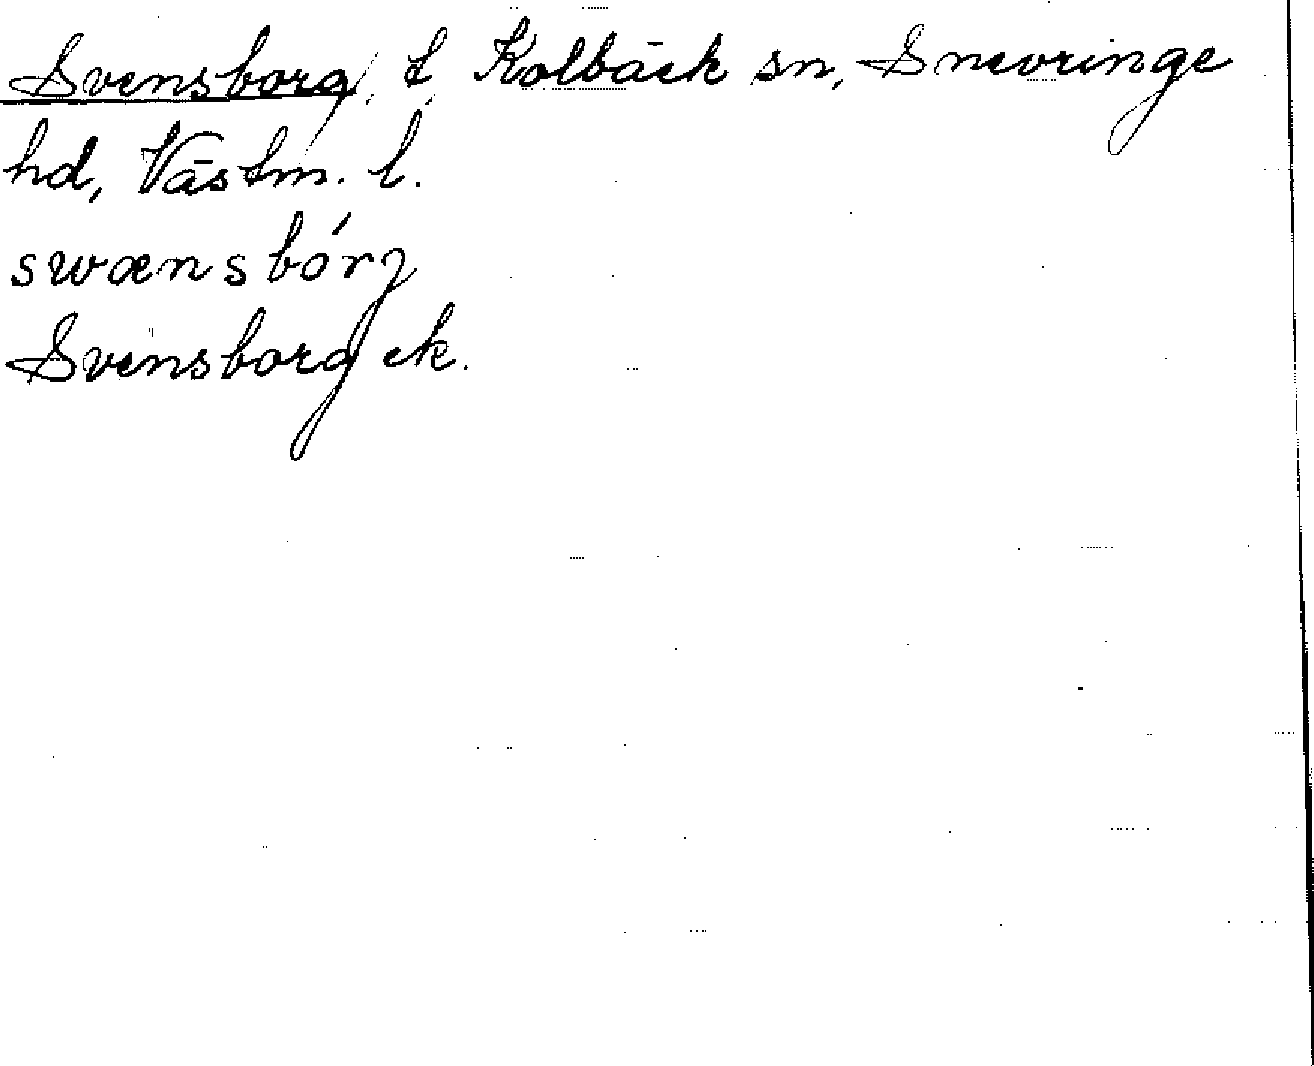 Svensborg, t Kolbäck sn, Snevringe
hd, Västm. l.
swænsbórj
Svensborg ek.